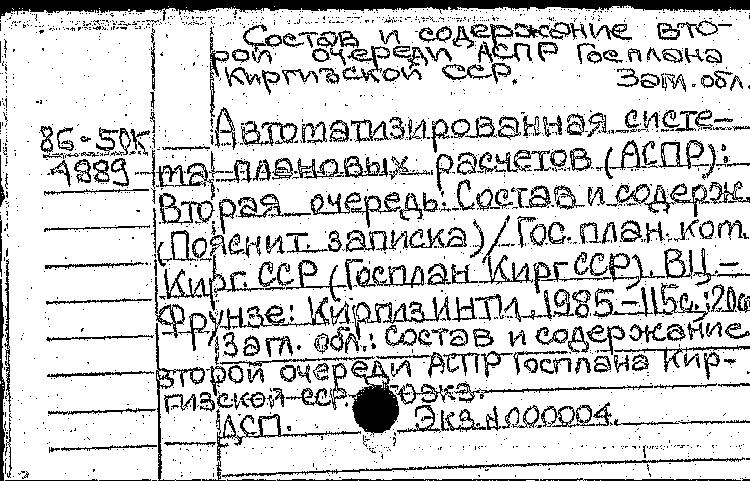 Состав и содержание вто-
рой очереди АСПР Госплана
Киргизской ССР. Загл. обл.
86-50К
4889
Автоматизированная систе-
ма плановых расчетов (АСПР):
Вторая очередь: Состав и содерж.
(Пояснит. записка) / Гос. план. ком.
Кирг. ССР (Госплан Кирг ССР). ВЦ.-
Фрунзе: КиргизИНТИ, 1985-115с.; 20см
Загл. обл.: Состав и содержание
второй очереди АСПР Госплана Кир-
гизской ССР.
ДСП. Экз. N000004.